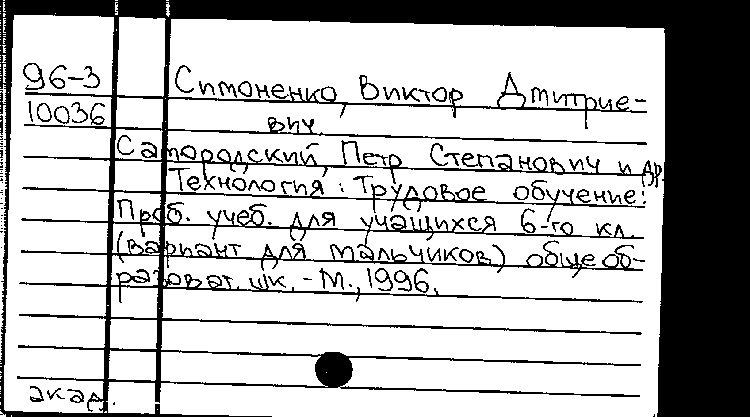 96-3 Симоненко, Виктор Дмитрие-
10036 вич.
Самородский, Петр Степанович и др.
Технология: Трудовое обучение:
Проб. учеб. для учащихся 6-го кл.
(вариант для мальчиков) общеоб-
разоват. шк. - М., 1996.
акад.